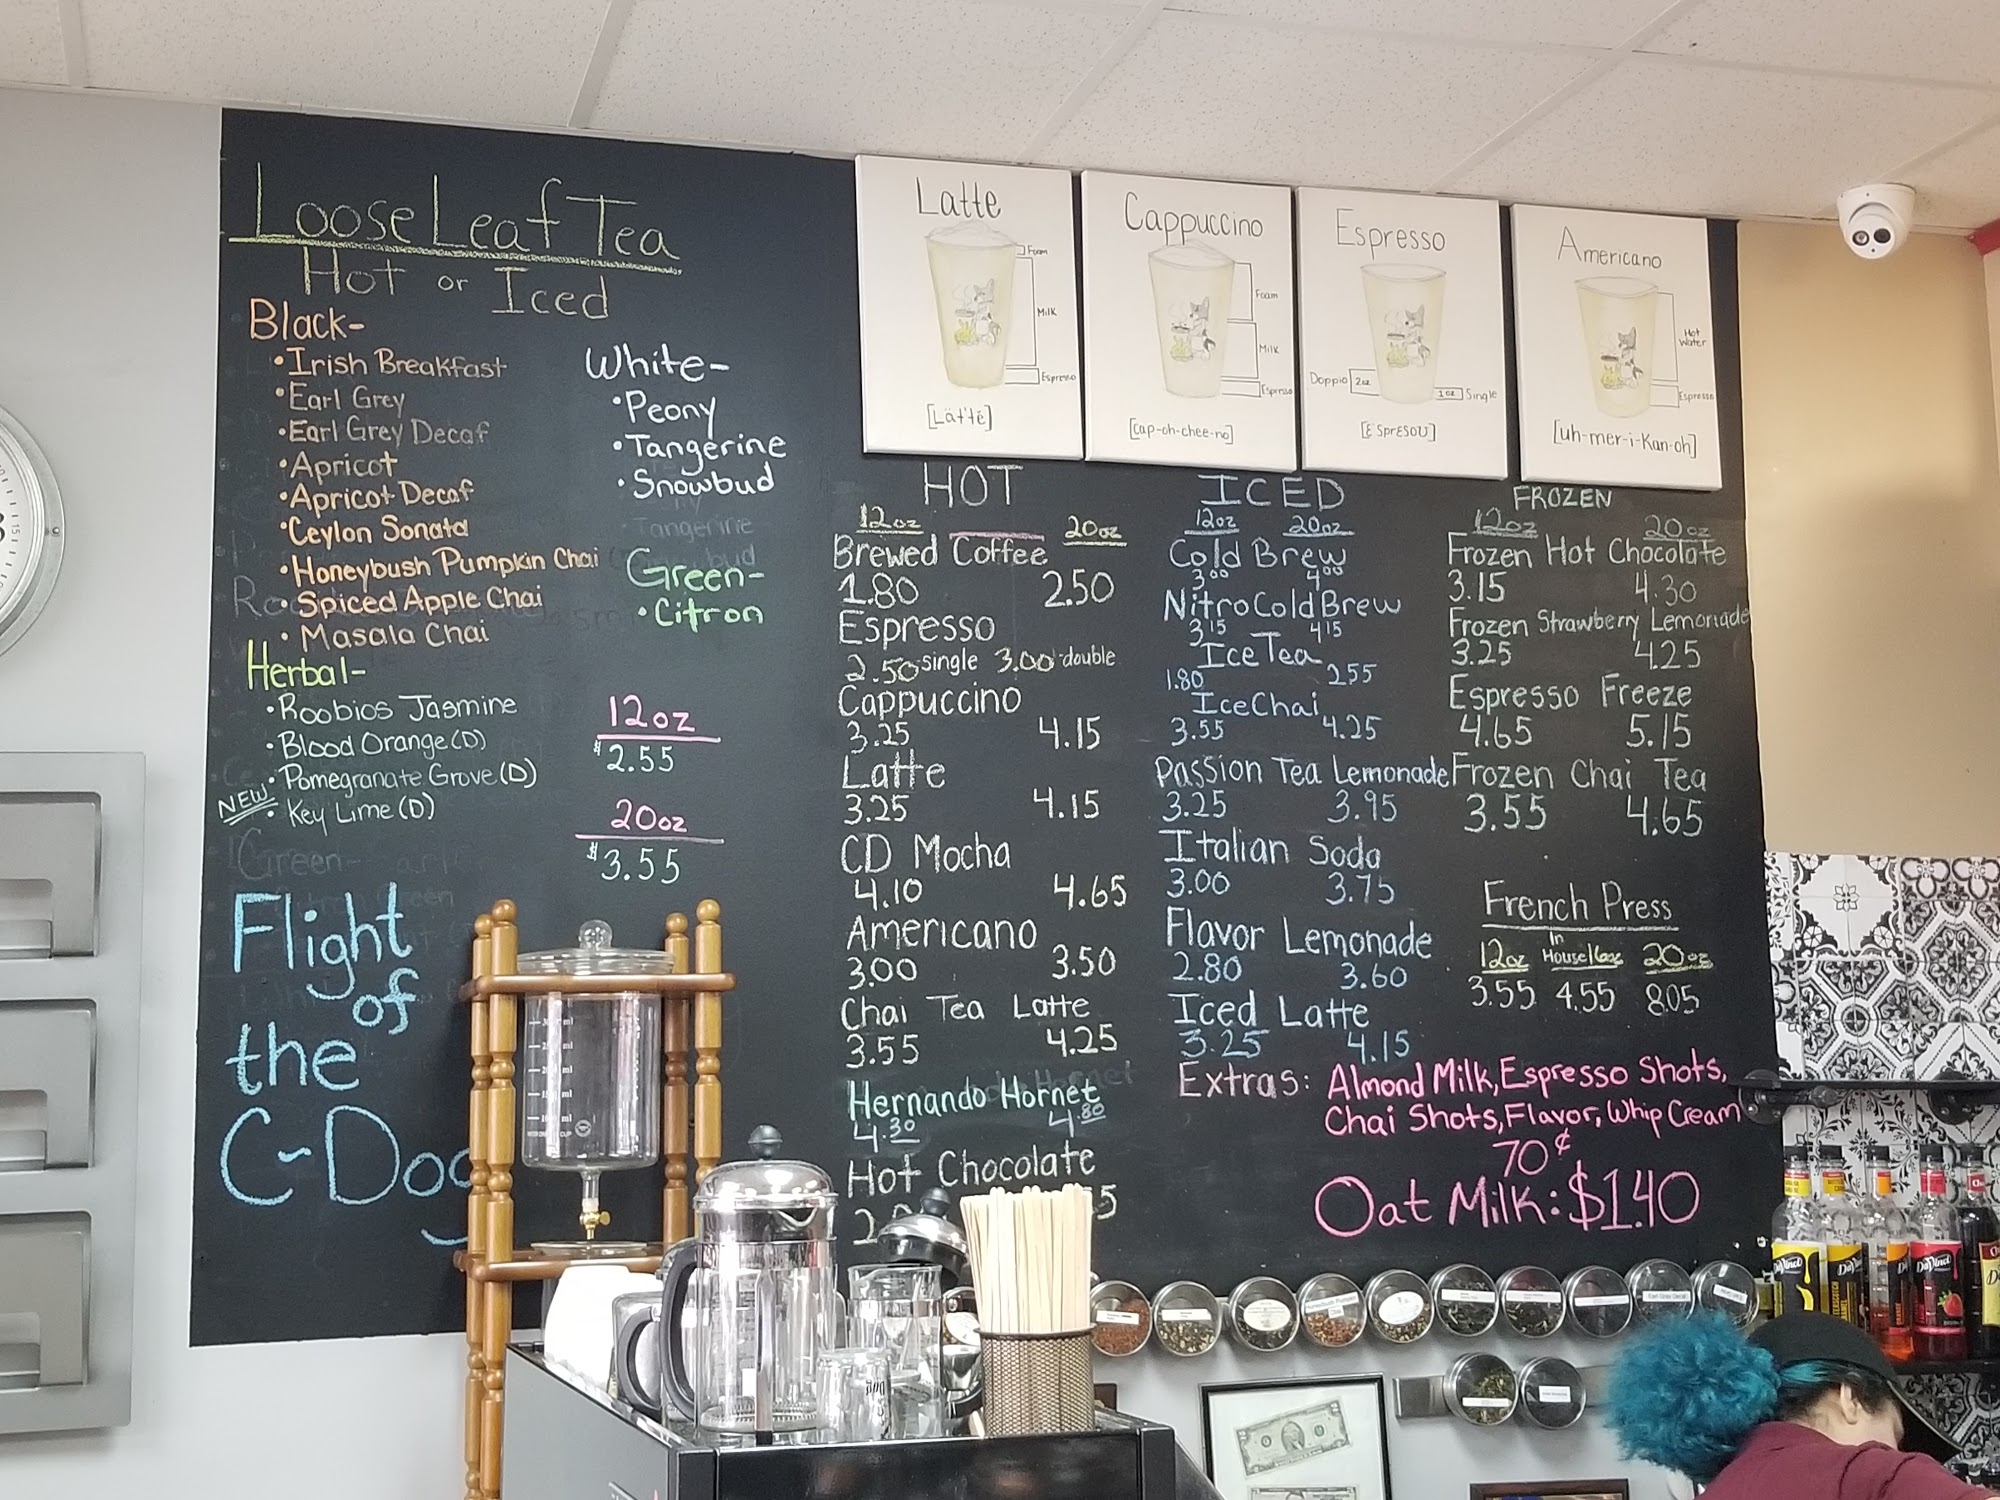 Loose Leaf Tea
Hot or Iced
Black-
•Irish Breakfast
•Earl Grey
•Earl Grey Decaf
•Apricot
•Apricot Decaf
•Ceylon Sonata
•Honeybush Pumpkin Chai
•Spiced Apple Chai
•Masala Chai
Herbal-
•Roobios Jasmine
•Blood Orange (D)
•Pomegranate Grove (D)
NEW • Key Lime (D)
White-
•Peony
•Tangerine
•Snowbud
Tangerine
Green-
•Citron
12oz
$2.55
20oz
$3.55
Green-
Flight
of
the
C-Dog
Latte
Foam
Milk
Espresso
[Lät'tē]
Cappuccino
Foam
Milk
Espresso
[cap-oh-chee-no]
Espresso
Doppio 2oz
1oz Single
Americano
Hot
Water
Espresso
[uh-mer-i-Kan-oh]
HOT
12oz 20oz
Brewed Coffee
1.80 2.50
Espresso
2.50 single 3.00 double
Cappuccino
3.25 4.15
Latte
3.25 4.15
CD Mocha
4.10 4.65
Americano
3.00 3.50
Chai Tea Latte
3.55 4.25
Hernando Hornet
4.30 4.80
Hot Chocolate
ICED
12oz 20oz
Cold Brew
3.00 4.00
Nitro Cold Brew
3.15 4.15
Ice Tea
1.80 2.55
Ice Chai
3.55 4.25
Passion Tea Lemonade
3.25 3.95
Italian Soda
3.00 3.75
Flavor Lemonade
2.80 3.60
Iced Latte
3.25 4.15
FROZEN
12oz 20oz
Frozen Hot Chocolate
3.15 4.30
Frozen Strawberry Lemonade
3.25 4.25
Espresso Freeze
4.65 5.15
Frozen Chai Tea
3.55 4.65
French Press
12oz In House 16oz 20oz
3.55 4.55 8.05
Extras: Almond Milk, Espresso Shots,
Chai Shots, Flavor, Whip Cream
70¢
Oat Milk: $1.40
DaVinci
DaVinci